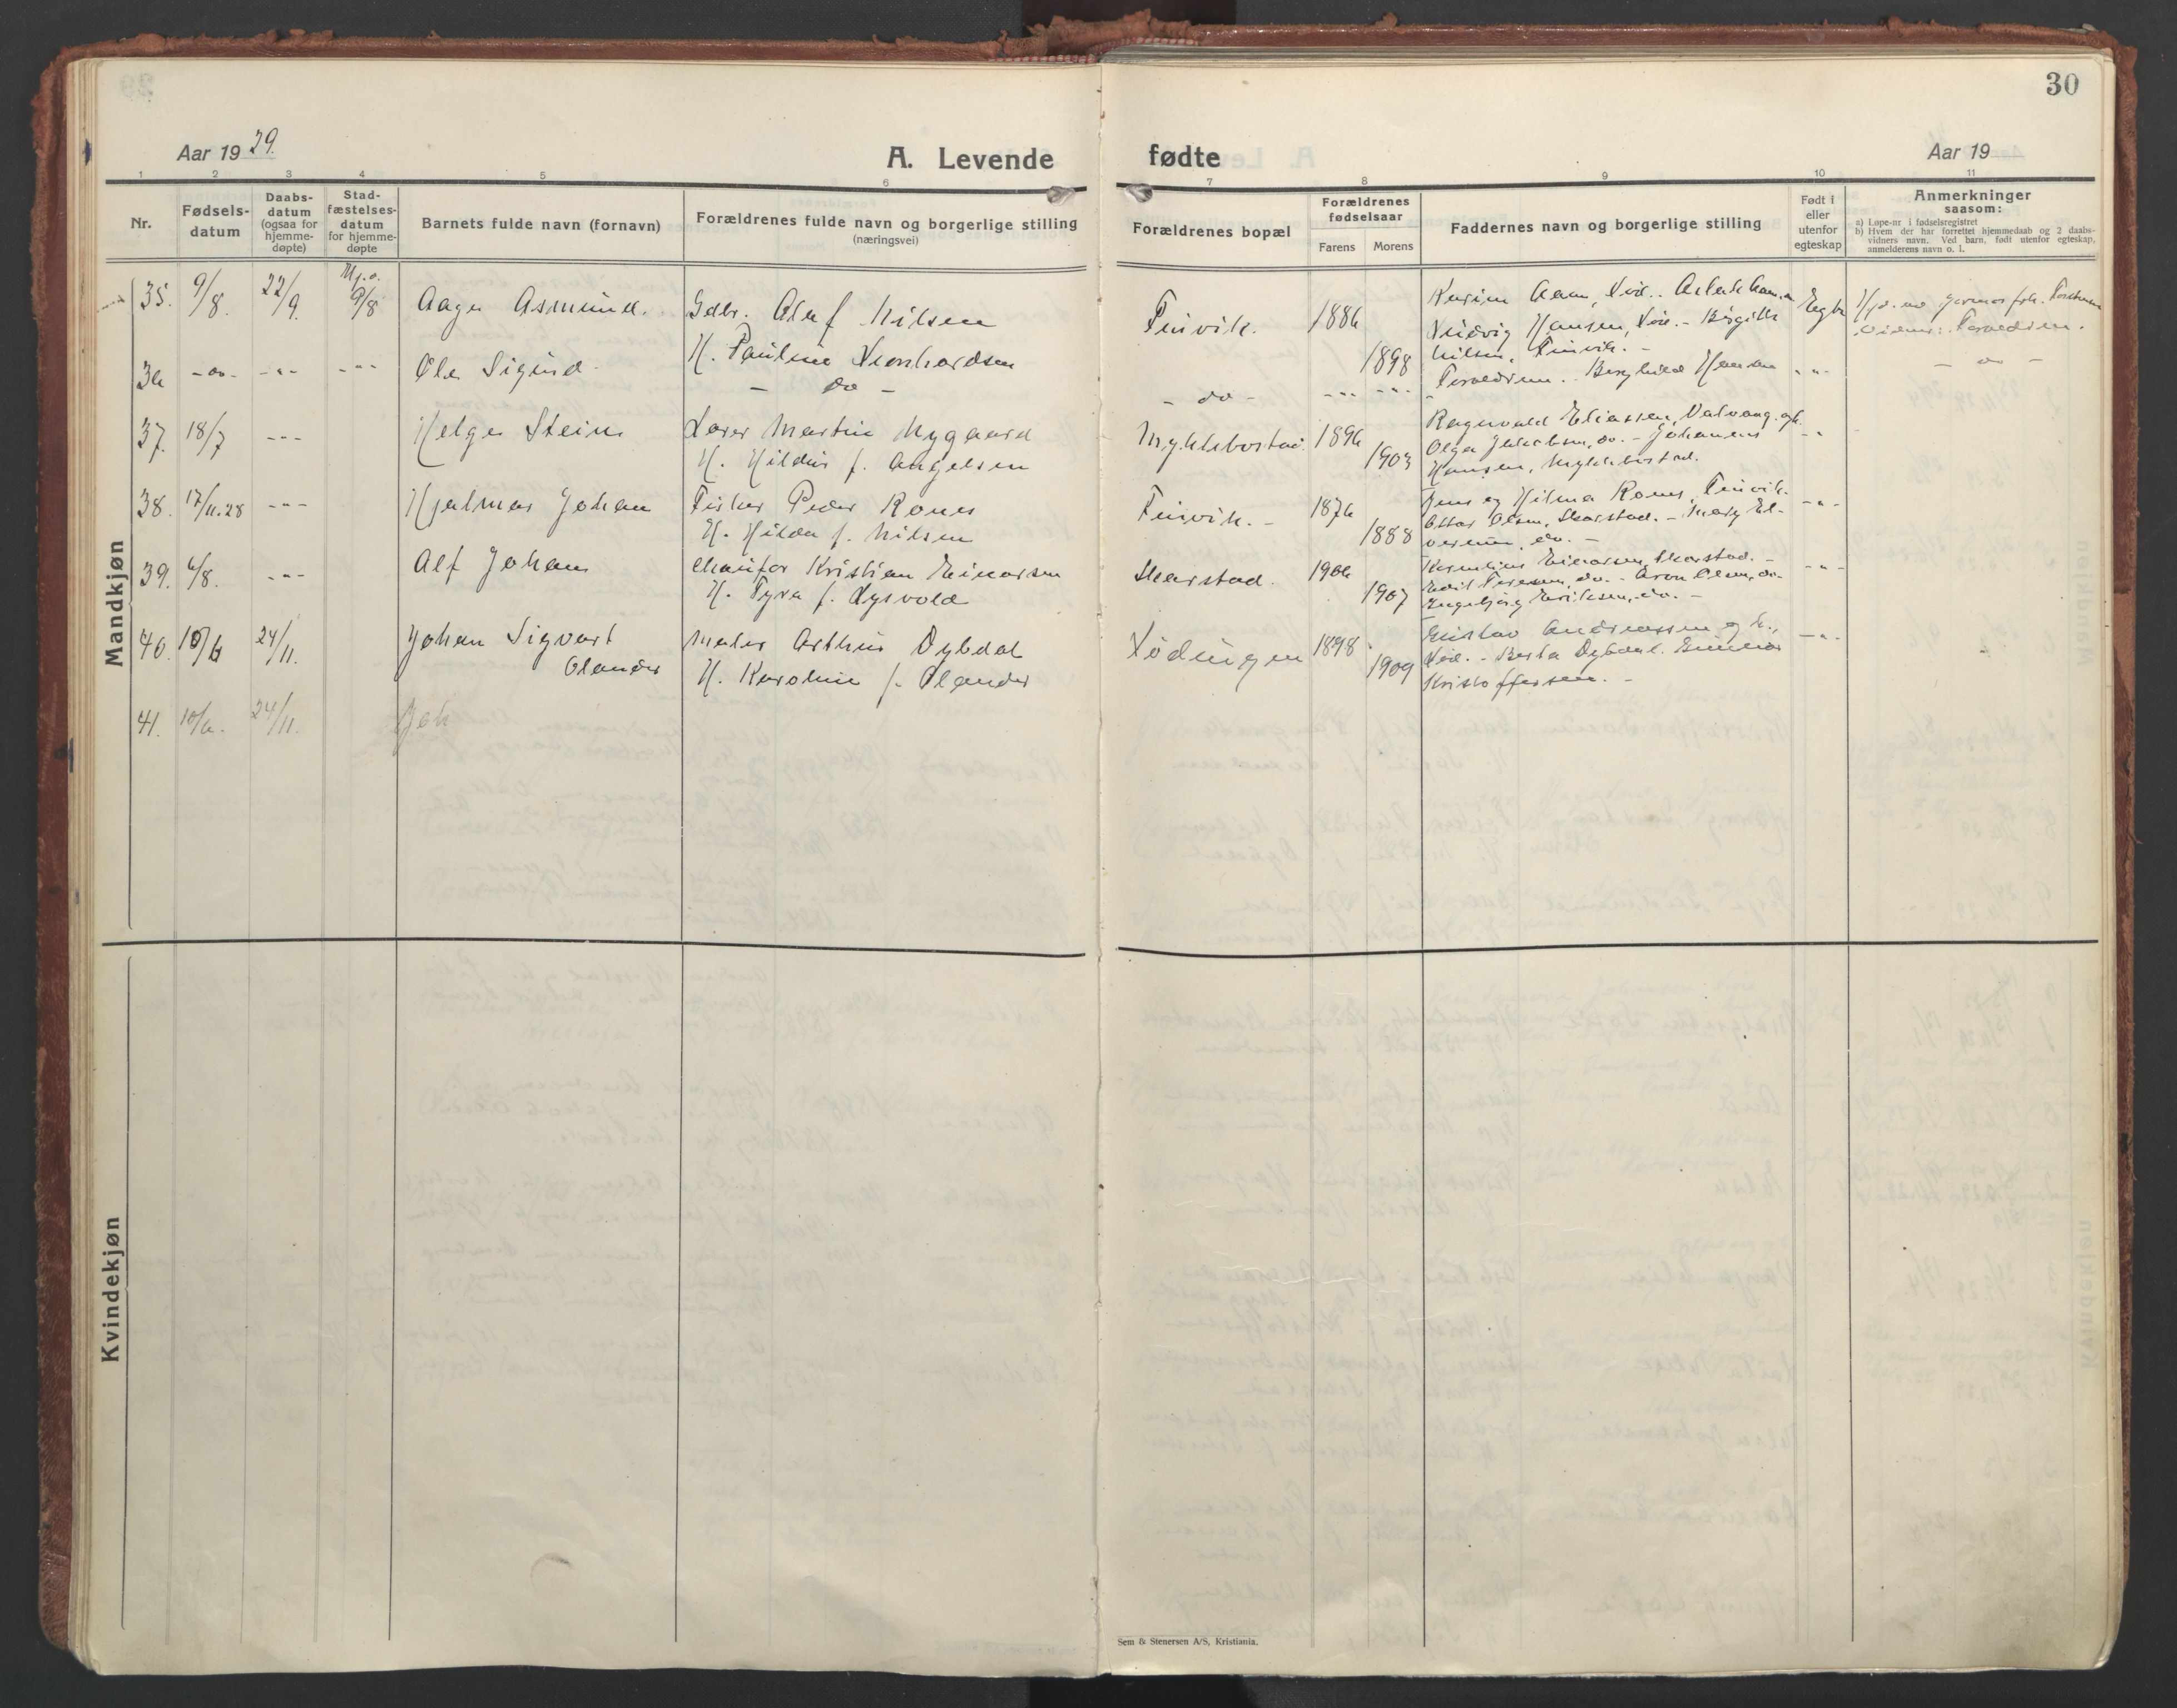 30
Aar 1929.
A. Levende fødte
Aar 19
1 2 3 4 5 6 7 8 9 10 11
Nr.
Fødsels-
datum
Daabs-
datum
(ogsaa for
hjemme-
døpte)
Stad-
fæstelses-
datum
for hjemme-
døpte
Barnets fulde navn (fornavn)
Forældrenes fulde navn og borgerlige stilling
(næringsvei)
Forældrenes bopæl
Forældrenes
fødselsaar
Farens Morens
Faddernes navn og borgerlige stilling
Født i
eller
utenfor
egteskap
Anmerkninger
saasom:
a) Løpe-nr i fødselsregistret
b) Hvem der har forrettet hjemmedaab og 2 daabs-
vidners navn. Ved barn, født utenfor egteskap,
anmelderens navn o. l.
Mandkjøn
35. 9/8. 22/9. 9/8 Aage Asmund. Gdbr. Olaf Nilsen
H. Pauline Leonhardsen
Finvik. 1886
1898
Ludvig Hansen,
Nilsen, Finvik. -
36 - do - - " - - " - Ole Sigurd - do -
- do - - " - - " - Forældrene. Borghild Hansen - " - - do -
37. 18/7 - " - Helge Stein Lærer Martin Nygaard
H. Hildur f. Angelsen
1896
1903
Ragnvald Eliassen,
Olga Jakobsen, do. - Johannes
Hansen,
38. 17/11.28 - " - Hjalmar Johan Fisker Peder Rones
H. Hilda f. Nilsen
Finvik. - 1876
1888
Jens og Hilma Rones, Finvik.
Olsen, Skarstad. -
do. - - " -
39. 6/8. - " - Alf Johan Chaufør Kristian Einarsen
H. Tyra f. Lysvold
Skarstad. 1906
1907
Kornelius Einarsen, Skarstad. -
do. - Olsen, do.
Ingebjørg Eriksen, do. - - " -
40. 10/6 24/11. Johan Sigvart
Olander
Maler Arthur Dybdal
H. Karoline f. Olander
Lødingen 1898
1909
Gustav Andreassen og h.,
Berta Dybdal. Gunnar
Kristoffersen. - - " -
41. 10/6. 24/11. Joh
Kvindekjøn
Sem & Stenersen A/S, Kristiania.